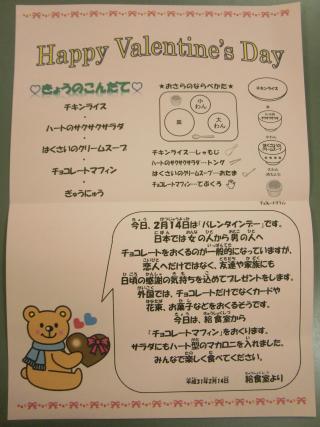 Happy Valentine's Day
♡きょうのこんだて♡
チキンライス
・
ハートのサクサクサラダ
・
はくさいのクリームスープ
・
チョコレートマフィン
・
ぎゅうにゅう
★おさらのならべかた★
小わん
皿
大わん
チキンライス…しゃもじ
ハートのサクサクサラダ…トング
はくさいのクリームスープ…おたま
チョコレートマフィン…てぶくろ
チキンライス
チョコレートマフィン
今日、2月14日は「バレンタインデー」です。
日本では女の人から男の人へ
チョコレートをおくるのが一般的になっていますが、
恋人へだけではなく、友達や家族にも
日頃の感謝の気持ちを込めてプレゼントをします。
外国では、チョコレートだけでなくカードや
花束、お菓子などをおくるそうです。
今日は、給食室から
「チョコレートマフィン」をおくります。
サラダにもハート型のマカロニを入れました。
みんなで楽しく食べてください。
平成31年2月14日 給食室より